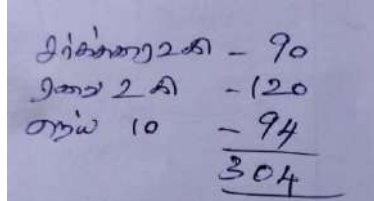 சர்க்கரை 2 கி - 90
ரவை 2 கி - 120
நெய் 10 - 94
304